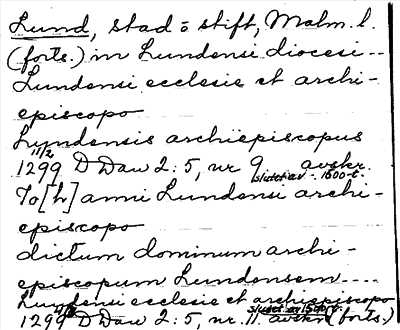 Lund, stad o stift, Malm. l.
(forts.) in Lundensi diocesi --
Lundensi ecclesie et archi-
episcopo
Lundensis archiepiscopus
11/2
1299 DDan 2:5, nr 9 avskr.
slutet av 1500-t.
Jo[h]anni Lundensi archi-
episcopo
dictum dominum archi-
episcopum Lundensem ----
Lundensi ecclesie et archiepiscopo
1299 DDan 2:5, nr 11 avskr. (forts.)
slutet av 1500-t.